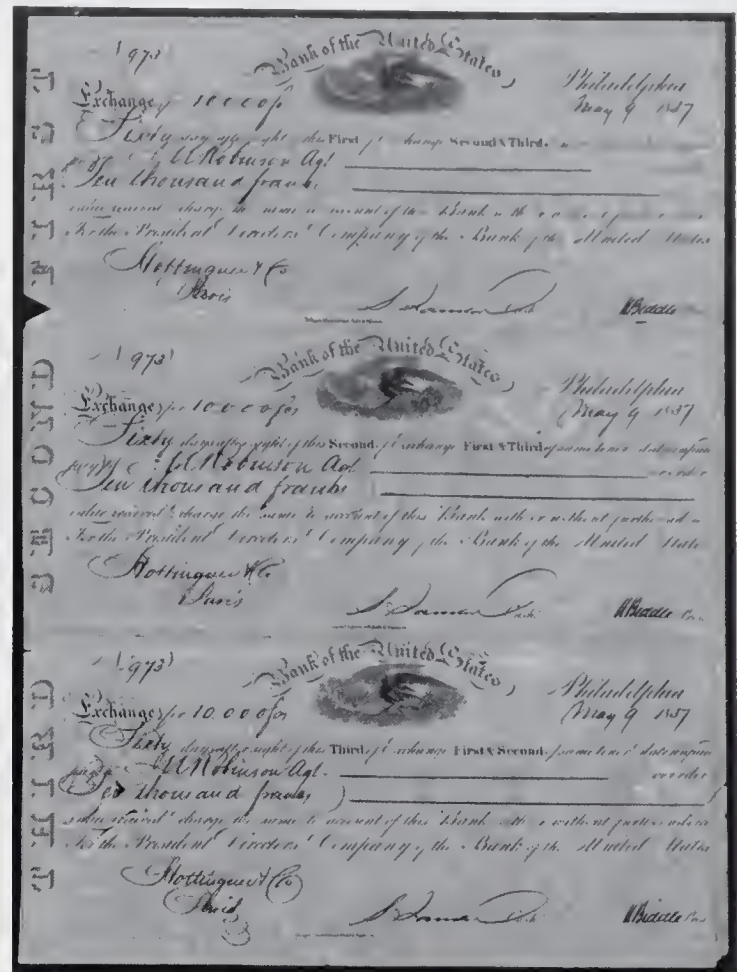 FIRST
973
Bank of the United States
Philadelphia
May 9 1837
Exchange for 10000 fs
Sixty days after sight of this First of exchange Second & Third
Robinson Agt
Ten thousand francs
value received & charge the same to account of this Bank with
For the President Directors & Company of the Bank of the United States
Hottinguer & Co
Paris
Cash
N Biddle
SECOND
973
Bank of the United States
Philadelphia
May 9 1837
Exchange for 10000 fs
Sixty days after sight of this Second of exchange First & Third of same tenor & date unpaid
pay to Robinson Agt or order
Ten thousand francs
value received & charge the same to account of this Bank with or without further
For the President Directors & Company of the Bank of the United States
Hottinguer & Co
Paris
Cash
N Biddle Pres
THIRD
973
Bank of the United States
Philadelphia
May 9 1837
Exchange for 10.000 fs
Sixty days after sight of this Third of exchange First & Second of same tenor & date unpaid
Robinson Agt or order
Ten thousand francs
value received & charge the same to account of this Bank with or without further
For the President Directors & Company of the Bank of the United States
Hottinguer & Co
Paris
Cash
N Biddle Pres